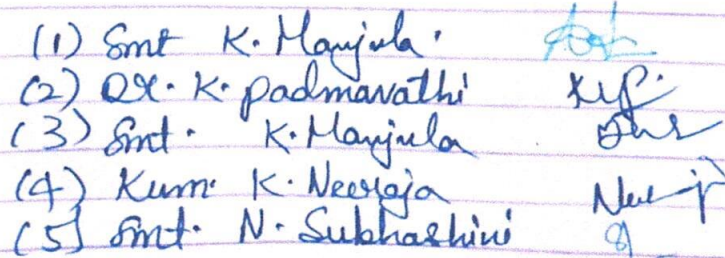 (1) Smt K. Manjula.
(2) Dr. K. Padmavathi
(3) Smt. K. Manjula
(4) Kum. K. Neeraja
(5) Smt. N. Subhashini